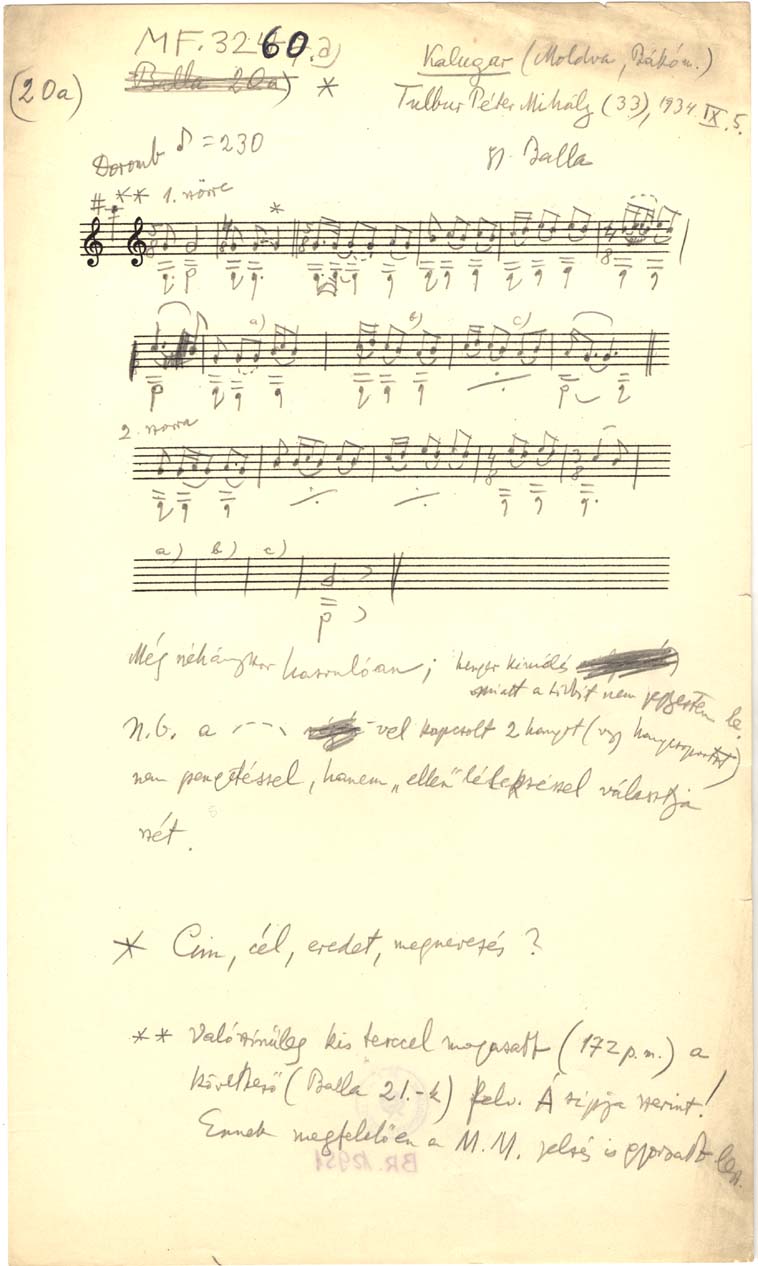 MF. 3260. a)
(20a)
Balla 20a) *
Kalugar (Moldva, Bákóm.)
Tulbur Péter Mihály (33), 1934. IX. 5.
Doromb ♪ = 230
gy. Balla
# ** 1. szorra *
a) b) c)
2. szorra
a) b) c)
Még néhányszor hasonlóan; henger
miatt a többit nem jegyeztem le.
N.B. a -vel kapcsolt 2 hangot (vagy hangcsoportot)
nem pengetéssel, hanem „ellen" lélekzéssel választja
szét.
* Cím, cél, eredet, megnevezés?
** Valószínűleg kis terccel magasabb (172 p.m.) a
következő (Balla 21.-k) felv. Á sípja szerint!
Ennek megfelelően a M.M. jelzés is gyorsabb lesz.
BR. 12951